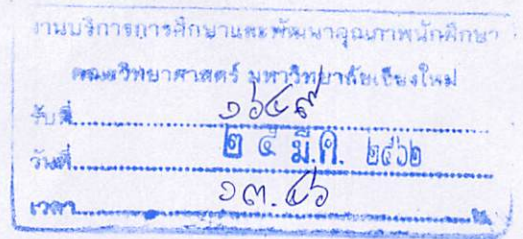 งานบริการการศึกษาและพัฒนาคุณภาพนักศึกษา
คณะวิทยาศาสตร์ มหาวิทยาลัยเชียงใหม่
รับที่ ๑๖๔๙
วันที่ ๒๕ มี.ค. ๒๕๖๒
เวลา ๑๓.๔๖ น.